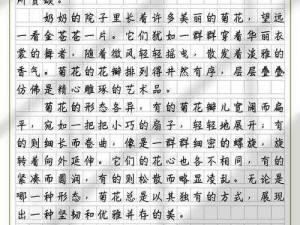 所赞颂。
奶奶的院子里长着许多美丽的菊花，望远
一看金苍苍一片。它们犹如一群群穿着华丽衣
裳的舞者，随着微风轻轻摇曳，散发着淡雅的
香气。菊花的花瓣排列得井然有序，层层叠叠
仿佛是精心雕琢的艺术品。
菊花的形态各异，有的菊花瓣儿宽阔而扁
平，宛如一把把小巧的扇子，轻轻地展开；有
的则细长而卷曲，像是一群群细密的螺旋，旋
转着向外延伸。它们的花心也各不相同，有的
紧凑而圆润，有的则松散而略显凌乱。无论是
哪一种形态，菊花总是以其独有的方式，展现
出一种坚韧和优雅并存的美。